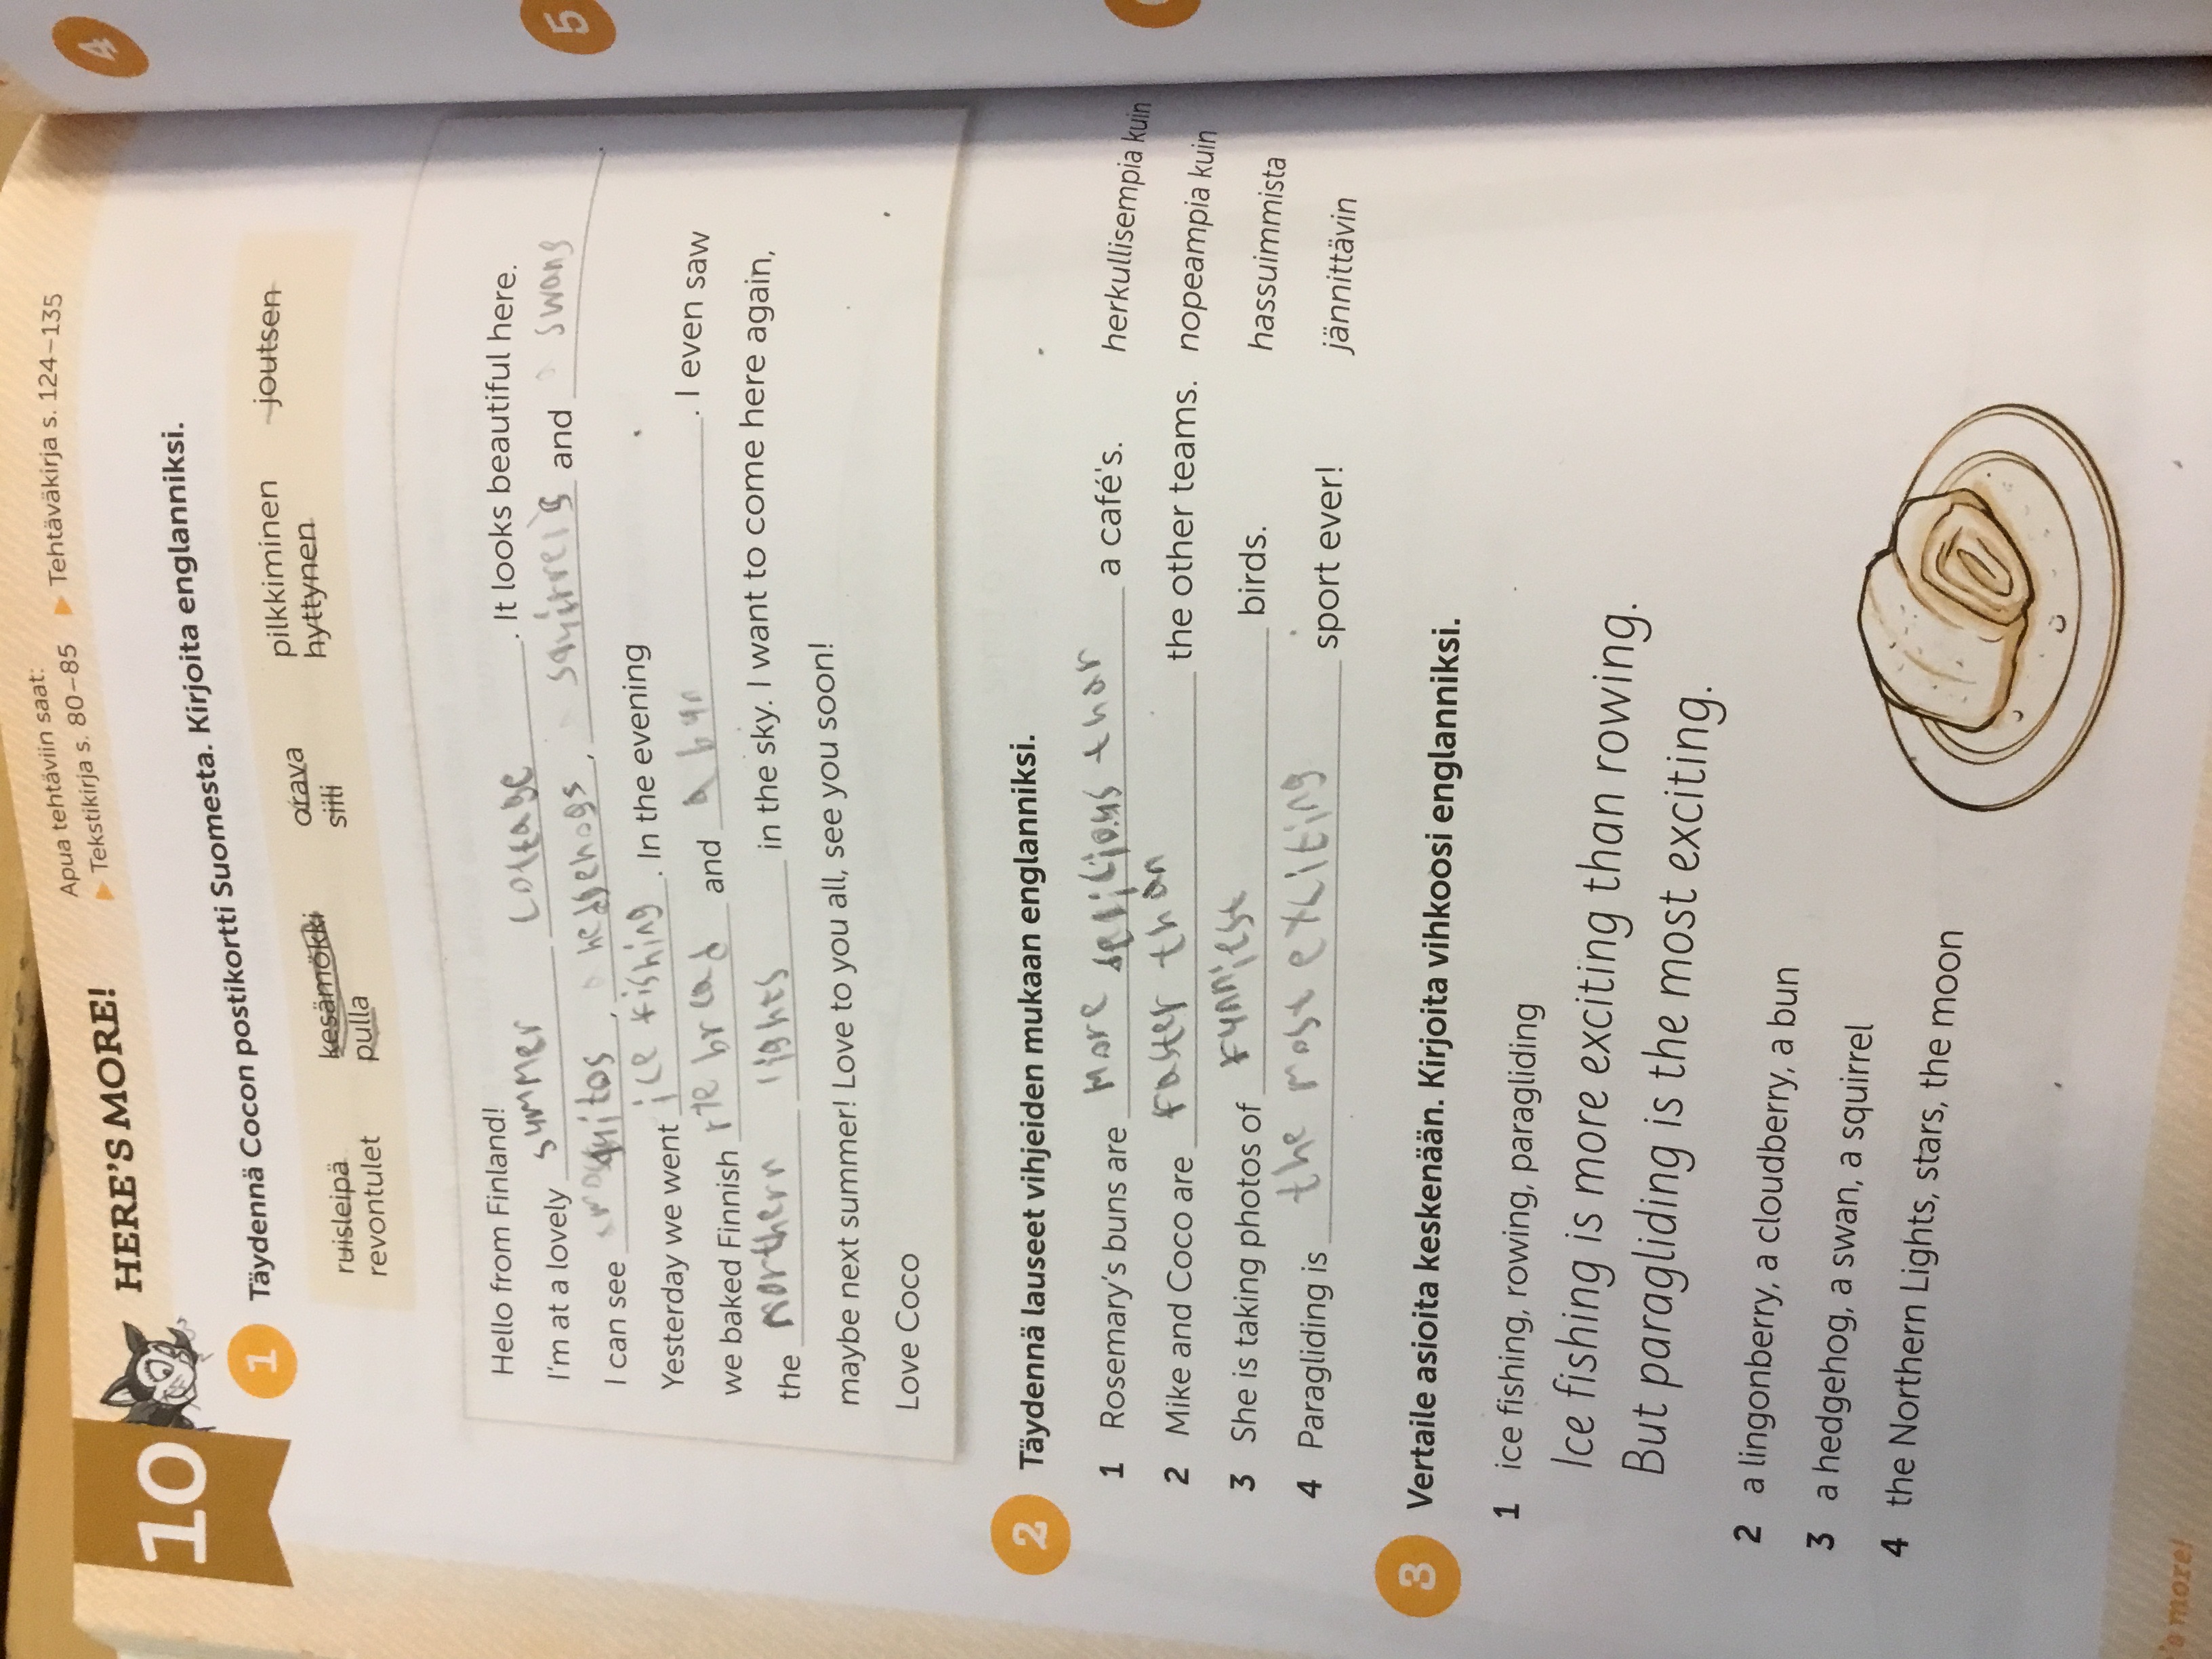 4
5
Apua tehtäviin saat:
▶ Tekstikirja s. 80–85 ▶ Tehtäväkirja s. 124–135
10 HERE'S MORE!
1 Täydennä Cocon postikortti Suomesta. Kirjoita englanniksi.
ruisleipä kesämökki orava pilkkiminen joutsen
revontulet pulla siili hyttynen
Hello from Finland!
I'm at a lovely summer cottage. It looks beautiful here.
I can see , hedgehogs, squirrels and swans
Yesterday we went ice fishing. In the evening
we baked Finnish rye bread and a bun. I even saw
the northern lights in the sky. I want to come here again,
maybe next summer! Love to you all, see you soon!
Love Coco
2 Täydennä lauseet vihjeiden mukaan englanniksi.
1 Rosemary's buns are more delicious than a café's. herkullisempia kuin
2 Mike and Coco are faster than the other teams. nopeampia kuin
3 She is taking photos of funniest birds. hassuimmista
4 Paragliding is the most exciting sport ever! jännittävin
3 Vertaile asioita keskenään. Kirjoita vihkoosi englanniksi.
1 ice fishing, rowing, paragliding
Ice fishing is more exciting than rowing.
But paragliding is the most exciting.
2 a lingonberry, a cloudberry, a bun
3 a hedgehog, a swan, a squirrel
4 the Northern Lights, stars, the moon
's more!